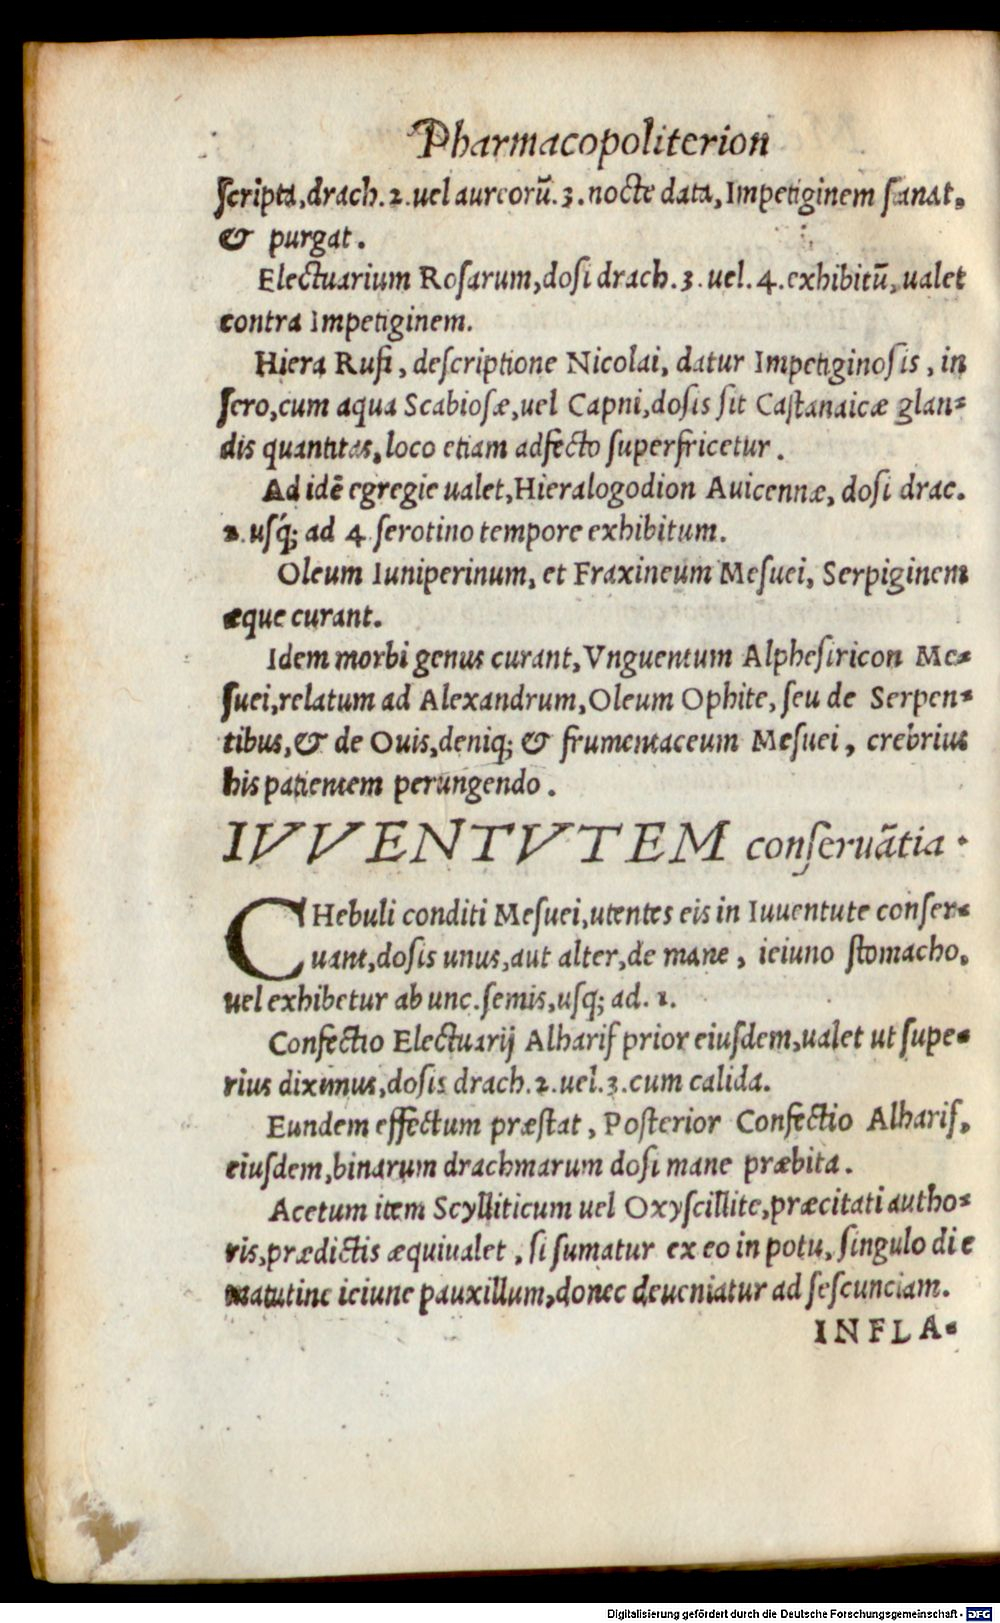 Pharmacopoliterion
scripta, drach. 2. uel aureorū. 3. nocte data, Impetiginem sanat,
& purgat.
Electuarium Rosarum, dosi drach. 3. uel. 4. exhibitū, ualet
contra Impetiginem.
Hiera Rufi, descriptione Nicolai, datur Impetiginosis, in
sero, cum aqua Scabiosæ, uel Capni, dosis sit Castanaicæ glan-
dis quantitas, loco etiam adfecto superfricetur.
Ad idē egregie ualet, Hieralogodion Auicennæ, dosi drac.
2. usq; ad 4 serotino tempore exhibitum.
Oleum Iuniperinum, et Fraxineum Mesuei, Serpiginem
æque curant.
Idem morbi genus curant, Vnguentum Alphesiricon Me-
suei, relatum ad Alexandrum, Oleum Ophite, seu de Serpen-
tibus, & de Ouis, deniq; & frumentaceum Mesuei, crebrius
his patientem perungendo.
IVVENTVTEM conseruātia.
CHebuli conditi Mesuei, utentes eis in Iuuentute conser-
uant, dosis unus, aut alter, de mane, ieiuno stomacho,
uel exhibetur ab unc. semis, usq; ad. 1.
Confectio Electuarij Alharif prior eiusdem, ualet ut supe-
rius diximus, dosis drach. 2. uel. 3. cum calida.
Eundem effectum præstat, Posterior Confectio Alharif,
eiusdem, binarum drachmarum dosi mane præbita.
Acetum item Scylliticum uel Oxyscillite, præcitati autho-
ris, prædictis æquiualet, si sumatur ex eo in potu, singulo die
matutine ieiune pauxillum, donec deueniatur ad sescunciam.
INFLA-
Digitalisierung gefördert durch die Deutsche Forschungsgemeinschaft - DFG